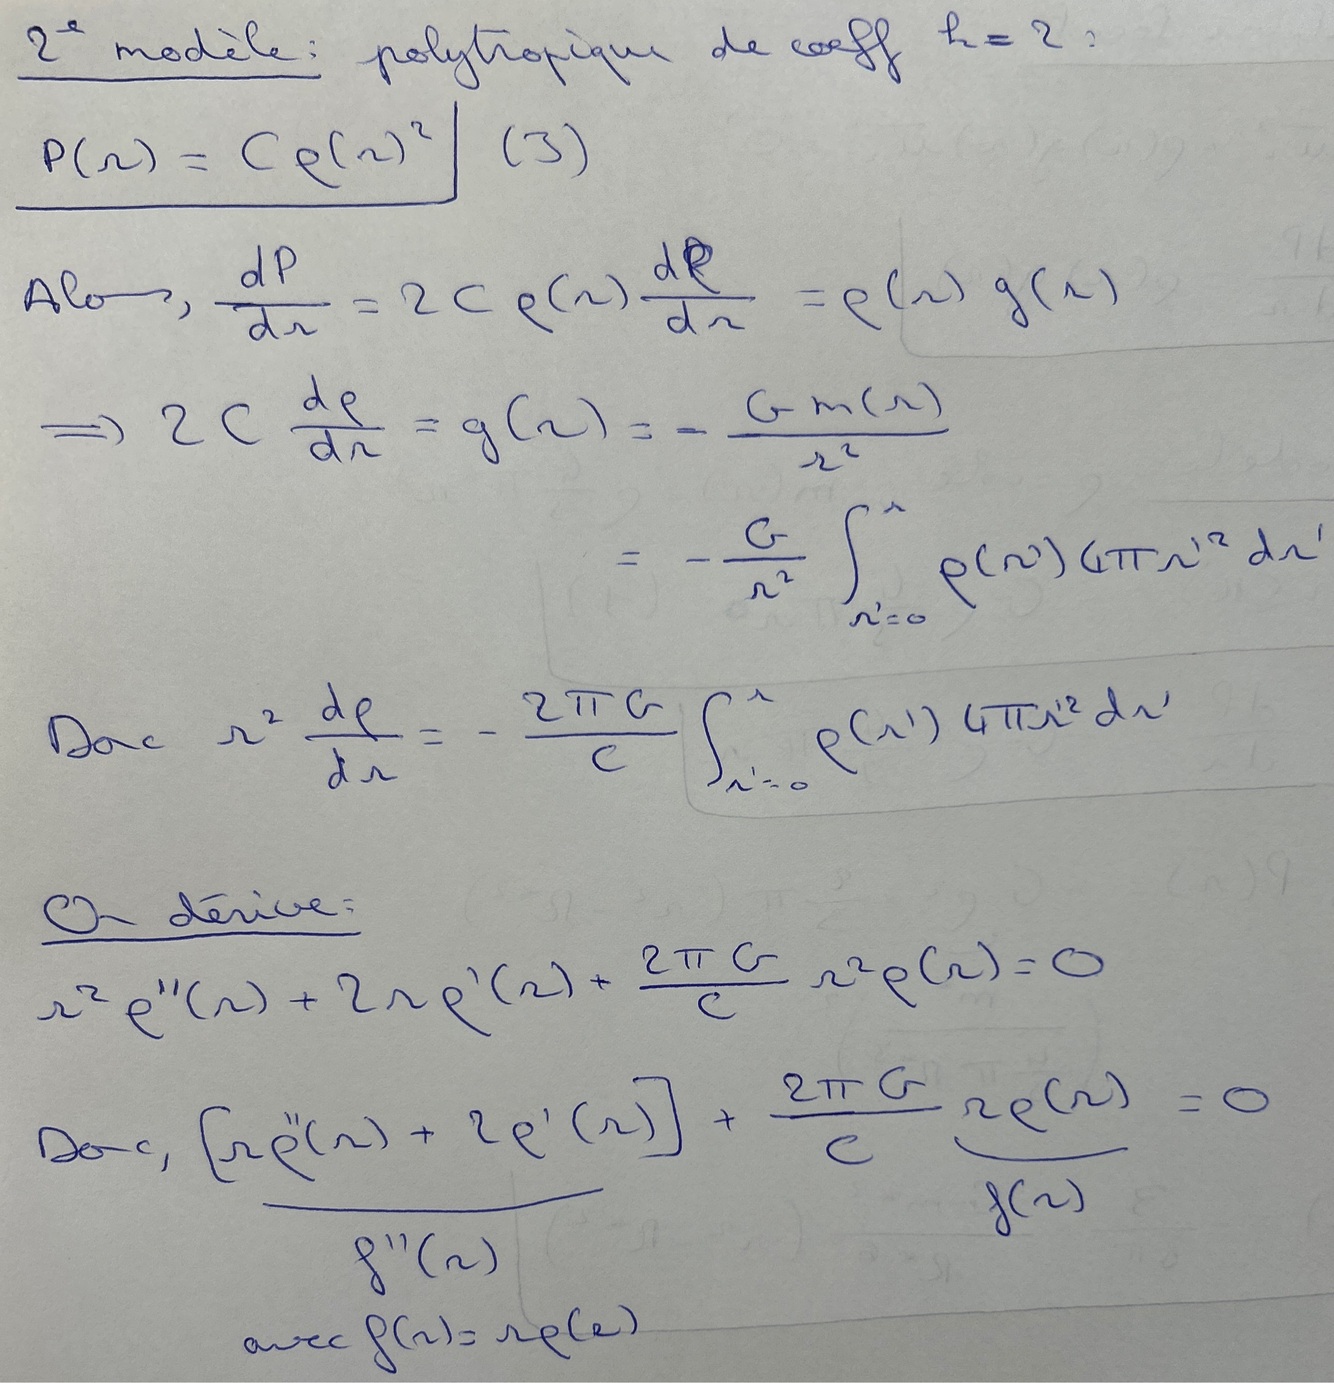 2e modèle: polytropique de coeff k=2:
P(r) = Cρ(r)² (3)
Alors, dP/dr = 2Cρ(r) dρ/dr = ρ(r) g(r)
=> 2C dρ/dr = g(r) = - G m(r)/r²
= - G/r² ∫_{r'=0}^{r} ρ(r') 4πr'² dr'
Donc r² dρ/dr = - 2πG/C ∫_{r'=0}^{r} ρ(r') 4πr'² dr'
On dérive:
r²ρ''(r) + 2rρ'(r) + 2πG/C r²ρ(r) = 0
Donc, [rρ''(r) + 2ρ'(r)] + 2πG/C rρ(r) = 0
f''(r) f(r)
avec f(r) = rρ(r)